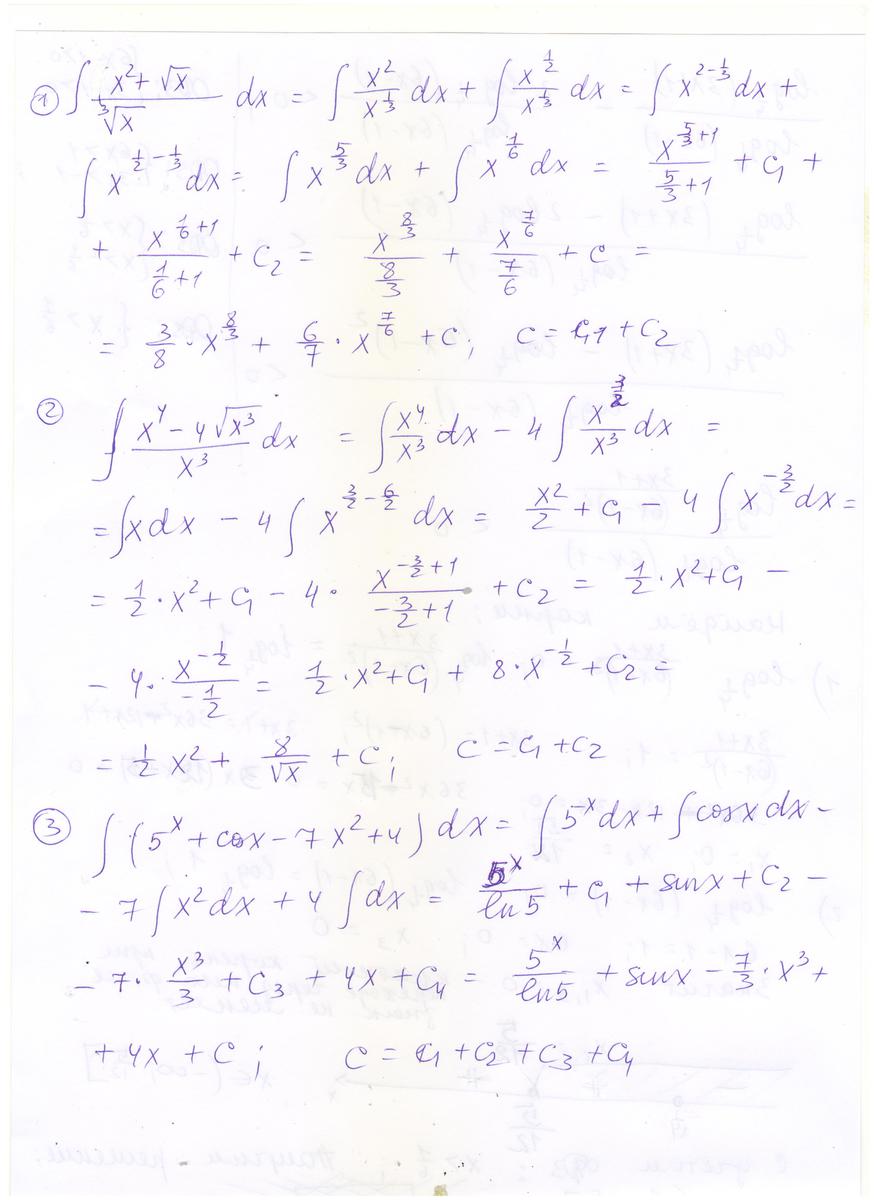 ① ∫ (x² + √x)/∛x dx = ∫ x²/x^(1/3) dx + ∫ x^(1/2)/x^(1/3) dx = ∫ x^(2-1/3) dx +
∫ x^(1/2-1/3) dx = ∫ x^(5/3) dx + ∫ x^(1/6) dx = x^(5/3+1)/(5/3+1) + C₁ +
+ x^(1/6+1)/(1/6+1) + C₂ = x^(8/3)/(8/3) + x^(7/6)/(7/6) + C =
= 3/8 · x^(8/3) + 6/7 · x^(7/6) + C; C = C₁ + C₂
② ∫ (x⁴ - 4√x³)/x³ dx = ∫ x⁴/x³ dx - 4 ∫ x^(3/2)/x³ dx =
= ∫ x dx - 4 ∫ x^(3/2-6/2) dx = x²/2 + C₁ - 4 ∫ x^(-3/2) dx =
= 1/2 · x² + C₁ - 4 · x^(-3/2+1)/(-3/2+1) + C₂ = 1/2 · x² + C₁ -
- 4 · x^(-1/2)/(-1/2) = 1/2 · x² + C₁ + 8 · x^(-1/2) + C₂ =
= 1/2 x² + 8/√x + C; C = C₁ + C₂
③ ∫ (5^x + cosx - 7x² + 4) dx = ∫ 5^x dx + ∫ cosx dx -
- 7 ∫ x² dx + 4 ∫ dx = 5^x/ln5 + C₁ + sinx + C₂ -
- 7 · x³/3 + C₃ + 4x + C₄ = 5^x/ln5 + sinx - 7/3 · x³ +
+ 4x + C; C = C₁ + C₂ + C₃ + C₄